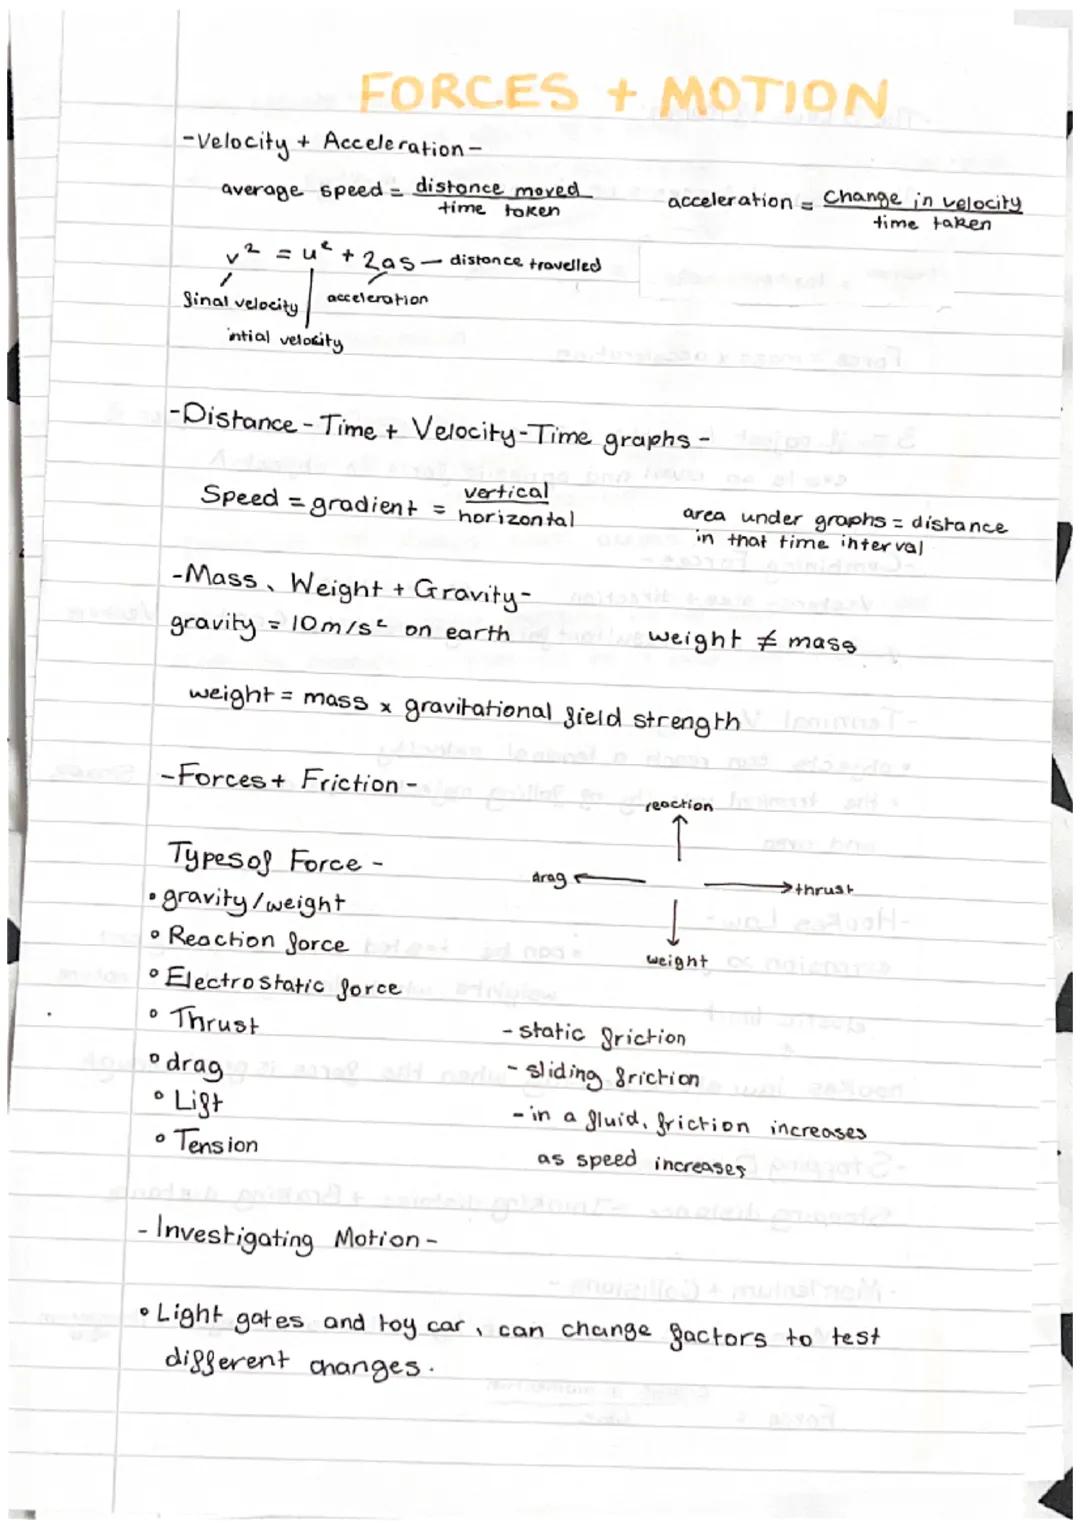 FORCES + MOTION
-Velocity + Acceleration-
average speed = distance moved / time taken
acceleration = Change in velocity / time taken
v² = u² + 2as — distance travelled
final velocity
acceleration
intial velocity
-Distance-Time + Velocity-Time graphs-
Speed = gradient = vertical / horizontal
area under graphs = distance
in that time interval
-Mass, Weight + Gravity-
gravity = 10m/s² on earth
weight ≠ mass
weight = mass x gravitational field strength
-Forces + Friction-
reaction
drag
thrust
weight
Types of Force -
• gravity/weight
• Reaction force
• Electrostatic force
• Thrust
• drag
• Lift
• Tension
- static friction
- sliding friction
- in a fluid, friction increases
as speed increases
- Investigating Motion -
• Light gates and toy car, can change factors to test
different changes.